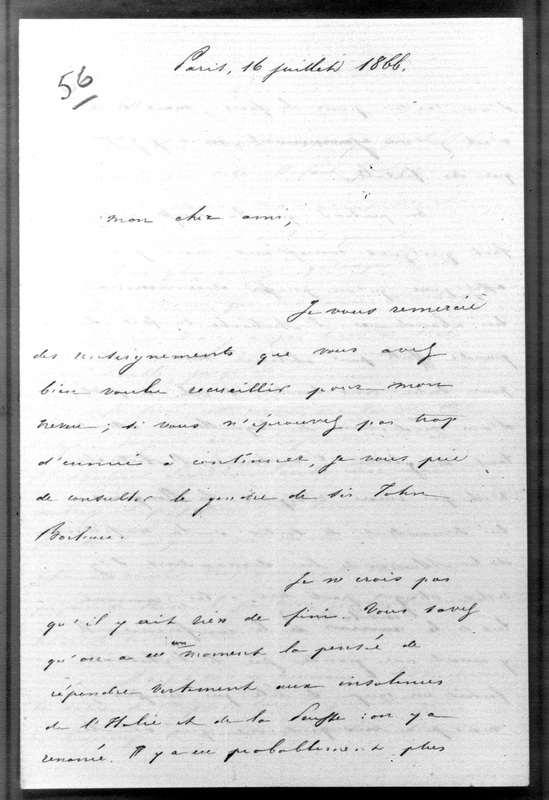 Paris, 16 juillet 1866.
56
mon cher ami,
Je vous remercie
des renseignements que vous avez
bien voulu recueillir pour mon
neveu ; si vous n'éprouvez pas trop
d'ennui à continuer, je vous prie
de consulter le gendre de sir John
Je ne crois pas
qu'il y ait rien de fini. Vous savez
qu'on a eu un moment la pensée de
répondre vertement aux insolences
de l'Italie et de la Prusse : on y a
renoncé. Il y a eu probablement plus